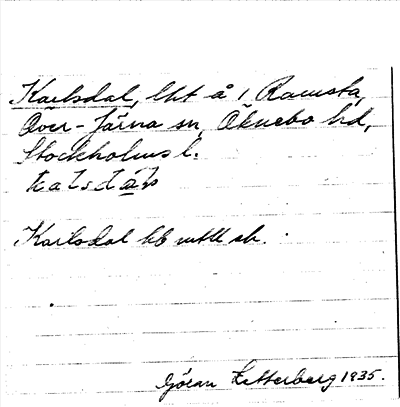 Karlsdal, lht å 1 Ramsta,
Över-Järna sn, Öknebo hd,
Stockholms l.
Karlsdal hb mtll sk.
Göran Zetterberg 1935.